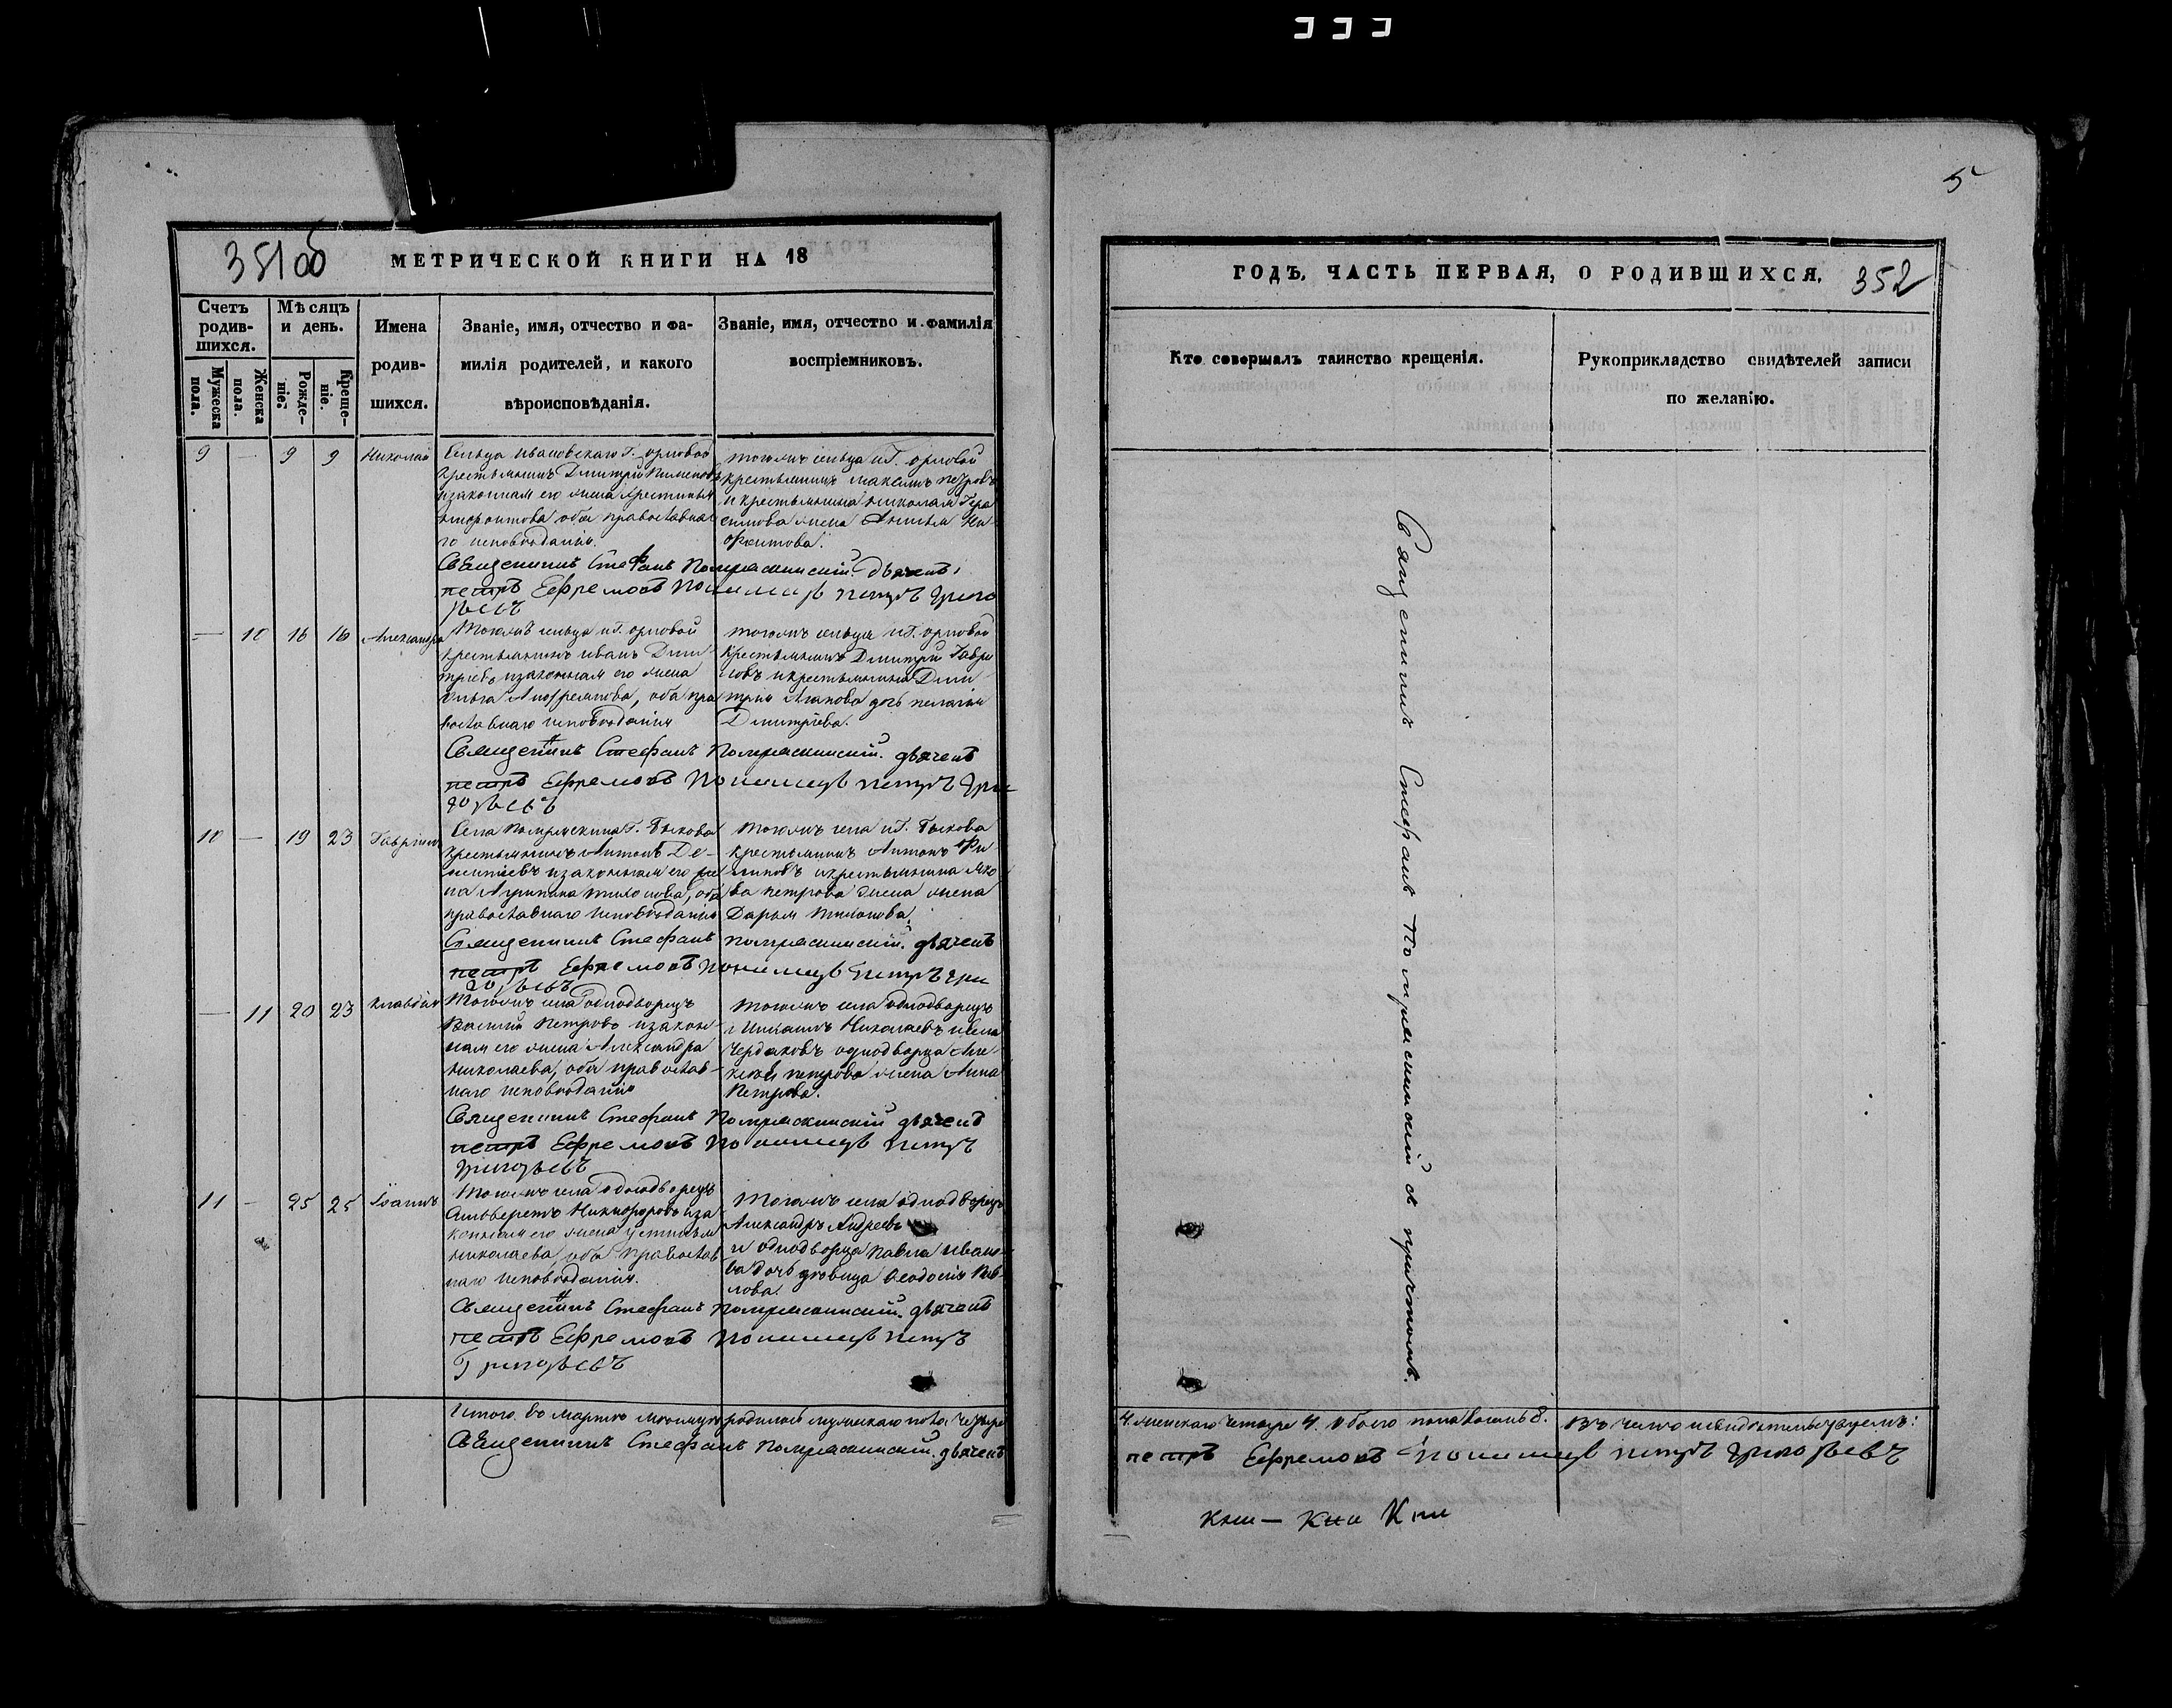 5
351 об
МЕТРИЧЕСКОЙ КНИГИ НА 18
Счетъ родив-шихся.
Мужеска пола.
Женска пола.
Мѣсяцъ и день.
Рожде-ніе.
Креще-ніе.
Имена
родив-
шихся.
Званіе, имя, отчество и фа-
милія родителей, и какого
вѣроисповѣданія.
Званіе, имя, отчество и фамилія
воспріемниковъ.
9 — 9 9 Николай
Сельца Ивановскаго Г. Орловой
крестьянинъ Дмитрій Пименовъ
и законная его жена Христинья
обa православна
го исповѣданія.
тогожъ сельца и Г. Орловой
крестьянинъ Максимъ Петровъ
и крестьянина Николая Гера
симова жена Анисья Ни
Священникъ Стефанъ Помряскинскій. Дьячекъ
петръ Ефремовъ Пономарь петръ Григо
рьевъ
— 10 16 16 Александра
Тогожъ сельца и Г. Орловой
крестьянинъ Иванъ Дми
тріевъ и законная его жена
Ольга оба пра
вославнаго исповѣданія
тогожъ сельца и Г. Орловой
крестьянинъ Дмитрій Гаври
ловъ и крестьянина Дми
трія дочь Пелагія
Дмитріева.
Священникъ Стефанъ Помряскинскій. дьячекъ
петръ Ефремовъ Пономарь петръ Гри
горьевъ
10 — 19 23 Гавріилъ
Села Помряскина Г. Быкова
крестьянинъ Антонъ Де-
ментіевъ и законная его же
на Агрипина оба
православнаго исповѣданія
тогожъ села и Г. Быкова
крестьянинъ Антонъ Фи
липовъ и крестьянина Яко
ва Петрова жена
Дарья
Священникъ Стефанъ помряскинскій. дьячекъ
петръ Ефремовъ Пономарь петръ гри
горьевъ
— 11 20 23 Клавдія
Тогожъ села однодворецъ
Василій Петровъ и закон
ная его жена Александра
Николаева, оба православ
наго исповѣданія
тогожъ села однодворецъ
Николаевъ и села
Чердаковъ однодворца Але
ксѣя Петрова жена Анна
Петрова.
Священникъ Стефанъ Помряскинскій дьячекъ
петръ Ефремовъ Пономарь петръ
Григорьевъ
11 — 25 25 Іоаннъ
Тогожъ села однодворецъ
Никифоровъ и за
конная его жена Устинья
Николаева, оба православ
наго исповѣданія.
Тогожъ села однодворецъ
Александръ Андреевъ
и однодворца Павла Ивано
ва дочь девица Ѳеодосія Пав
лова.
Священникъ Стефанъ помряскинскій. дьячекъ
петръ Ефремовъ Пономарь петръ
Григорьевъ
Итого въ мартѣ мѣсяцѣ родилось мужескаго пола четыре
Священникъ Стефанъ Помряскинскій. дьячекъ
ГОДЪ, ЧАСТЬ ПЕРВАЯ, О РОДИВШИХСЯ.
352
Кто совершалъ таинство крещенія.
Рукоприкладство свидѣтелей записи
по желанію.
Священникъ Стефанъ Помряскинскій съ причтомъ.
4. женскаго четыре 4. обоего пола восемь 8. Въ чемъ и свидѣтельствуемъ:
петръ Ефремовъ Пономарь петръ Григорьевъ